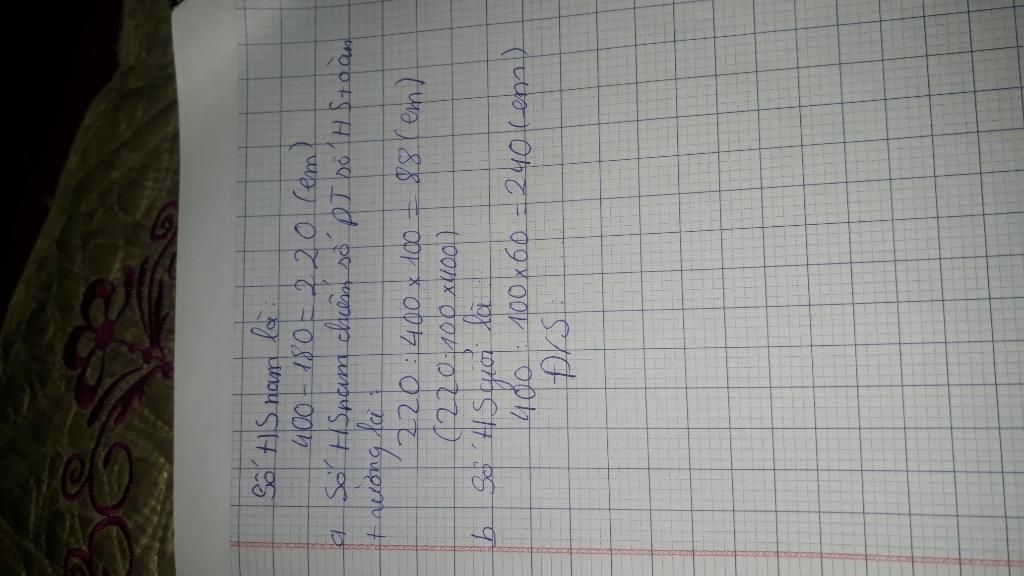 Số HS nam là:
400 - 180 = 220 (em)
a Số HS nam chiếm số PT số HS toàn
trường là:
220 : 400 x 100 = 88 (em)
(220:100 x 400)
b Số HS giỏi là
400 : 100 x 60 = 240 (em)
Đ/S: